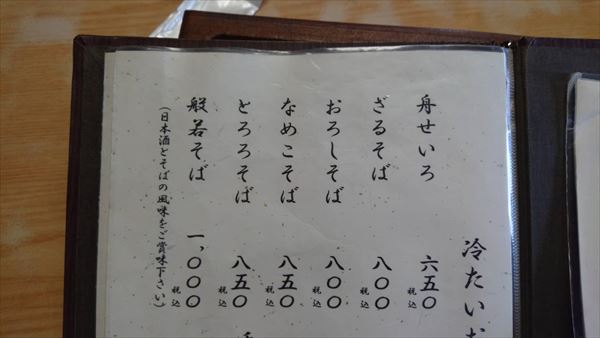 冷たい
舟せいろ 六五〇 税込
ざるそば 八〇〇 税込
おろしそば 八〇〇 税込
なめこそば 八五〇 税込
とろろそば 八五〇 税込
般若そば 一、〇〇〇 税込
(日本酒とそばの風味をご賞味下さい)